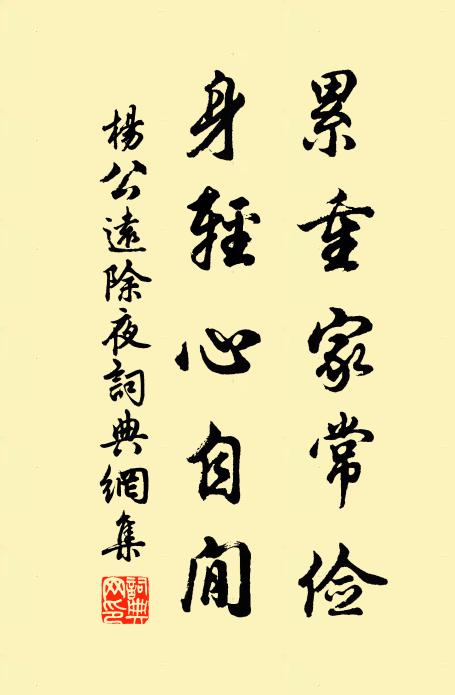 累重家常儉
身輕心自閒
楊公遠除夜詞典網集
詞典網印